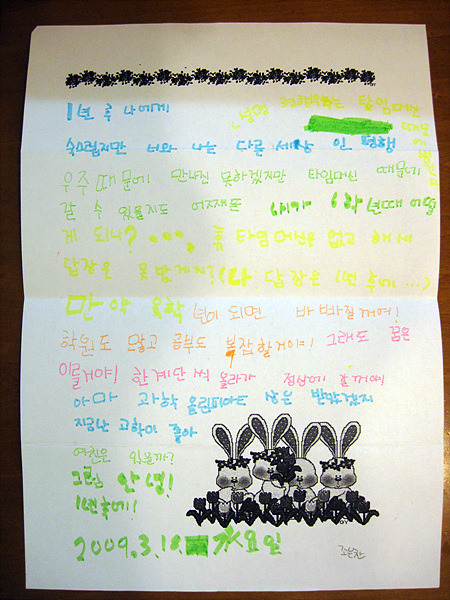 1년 후 나에게
타임머신
쑥스럽지만 너와 나는 다른 세상 인 평행
우주 때문에 만나진 못하겠지만 타임머신 때문에
갈 수 있을지도 어쨌든 내가 6학년때 어떻
게 되니? 타임머신은 없고 해서
답장은 못 받겠지? (나 답장은 1년 후에 ...)
만약 육학년이 되면 바빠질거여!
학원도 많고 공부도 복잡할거야! 그래도 꿈은
이룰거야! 한계단 씩 올라가 정상에 갈꺼야!
아마 과학 올림피아드 상은 받았겠지
지금난 과학이 좋아
여친은 있을까?
그럼 안녕!
1년후에!
2009.3.18 水요일